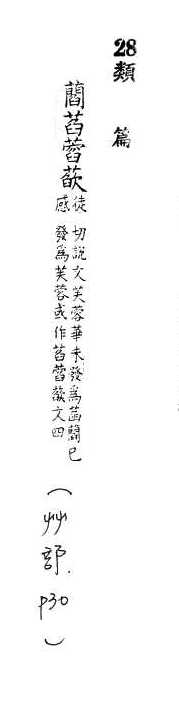 28類篇
萏蓞
徒
感
切說文芙蓉華未發為菡已
發為芙蓉或作萏蓞文四
（艸部．P30）